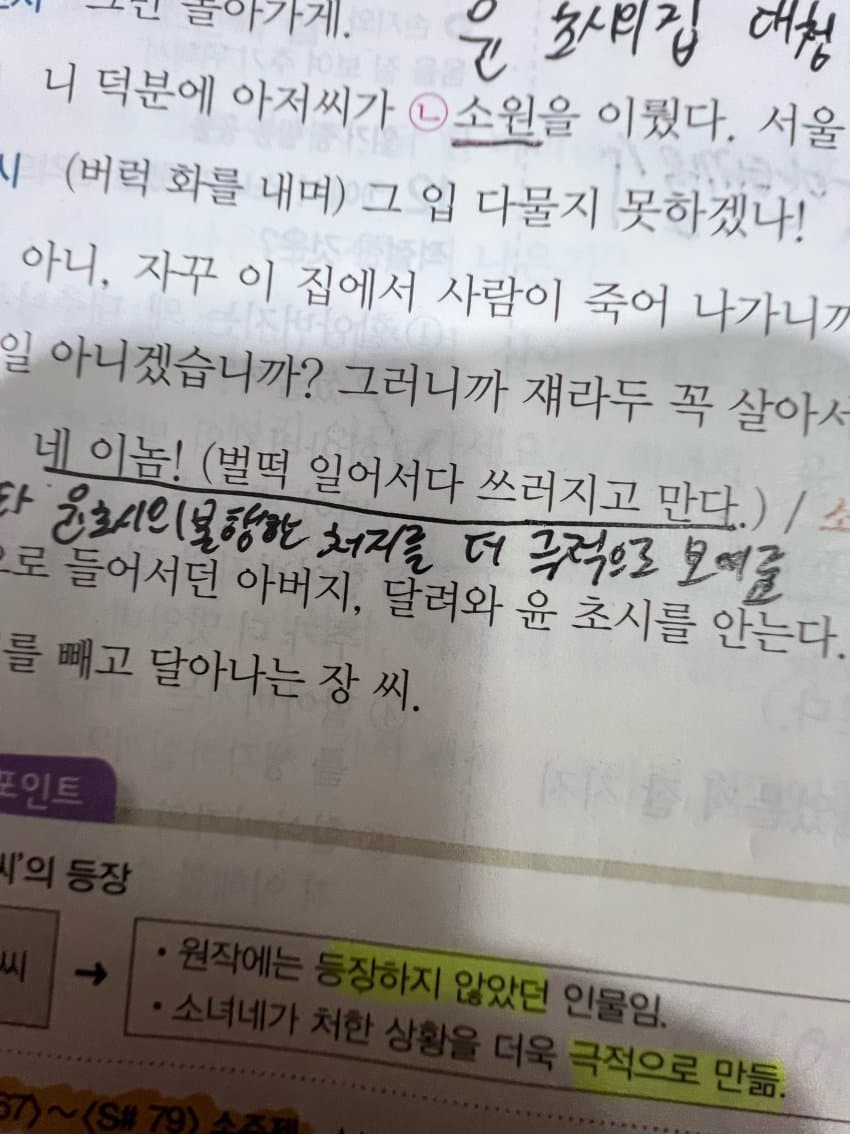 그런 돌아가게.
윤 초시의집 대청
니 덕분에 아저씨가 ㉡소원을 이뤘다. 서울
시 (버럭 화를 내며) 그 입 다물지 못하겠나!
아니, 자꾸 이 집에서 사람이 죽어 나가니까
일 아니겠습니까? 그러니까 쟤라두 꼭 살아서
네 이놈! (벌떡 일어서다 쓰러지고 만다.) / 소
윤초시의 불행한 처지를 더 극적으로 보여줌
으로 들어서던 아버지, 달려와 윤 초시를 안는다.
를 빼고 달아나는 장 씨.
포인트
씨'의 등장
씨 →
• 원작에는 등장하지 않았던 인물임.
• 소녀네가 처한 상황을 더욱 극적으로 만듦.
67〉~〈S# 79〉 소주제